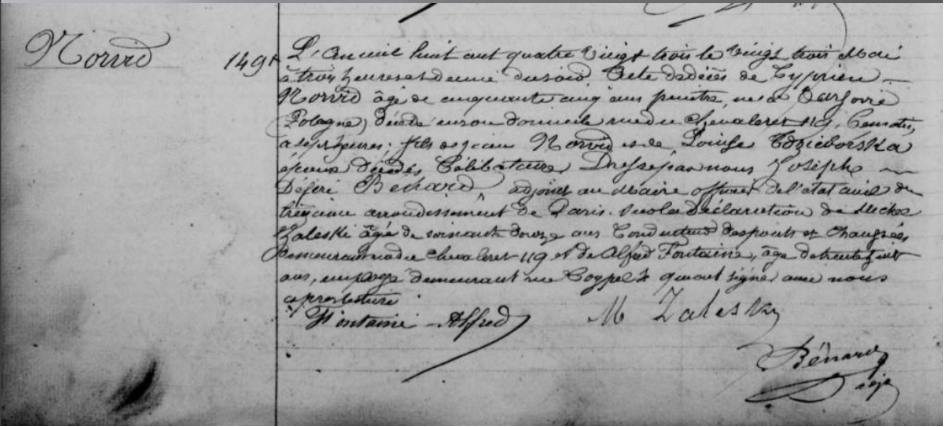 Norvid
1491
L'an mil huit cent quatre vingt trois le vingt trois Mai
à trois heures et demie du soir Acte de décès de Cyprien
Norvid âgé de cinquante cinq ans peintre, né à Varsovie
(Pologne) décédé en son domicile rue du Chevaleret 119, ce matin,
à sept heures; fils de Jean Norvid et de Louise
époux décédés Célibataire Dressé par nous Joseph
Désiré Benard adjoint au Maire officier de l'état civil du
treizième arrondissement de Paris. sur la Déclaration de
Zaleski âgé de soixante douze ans Conducteur des ponts et chaussées
demeurant rue du Chevaleret 119 et de Alfred Fontaine, âgé de trente huit
ans, employé demeurant rue qui ont signé avec nous
après lecture
Fontaine Alfred M Zaleski
Bénard